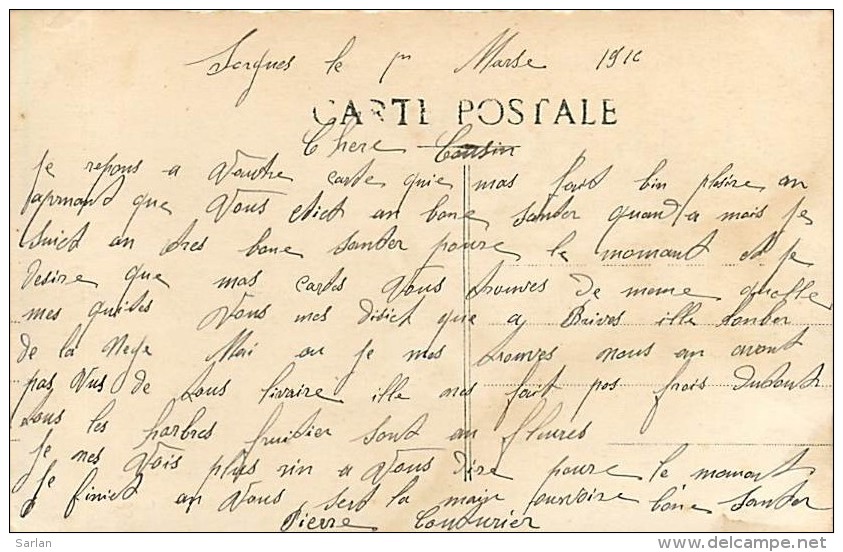 Sorgues le 1er Marse 1910
CARTE POSTALE
Chere Cousin
Je repons a Voutre carte quie mas fait bin plaisire an
aprnant que Vous etict an bone santer quand a mois je
suict an tres bone santer poure le momant et je
desire que mas cartes Vous trouves de meme quelle
mes quites Vous mes disict que a Brives ille tonber
de la Nege Moi ou je mes trouves nous an avont
pas Vus de tous livaire ille nes fait pas frois dutout
tous les harbres fruitier sont an fleures
je nes Vois plus rin a Vous dire poure le momant
Je finict an Vous sert la main ourvoire bone santer
Pierre Couturier
Sarlan
delcampe.net